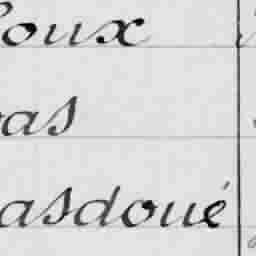 oux
as
asdoué